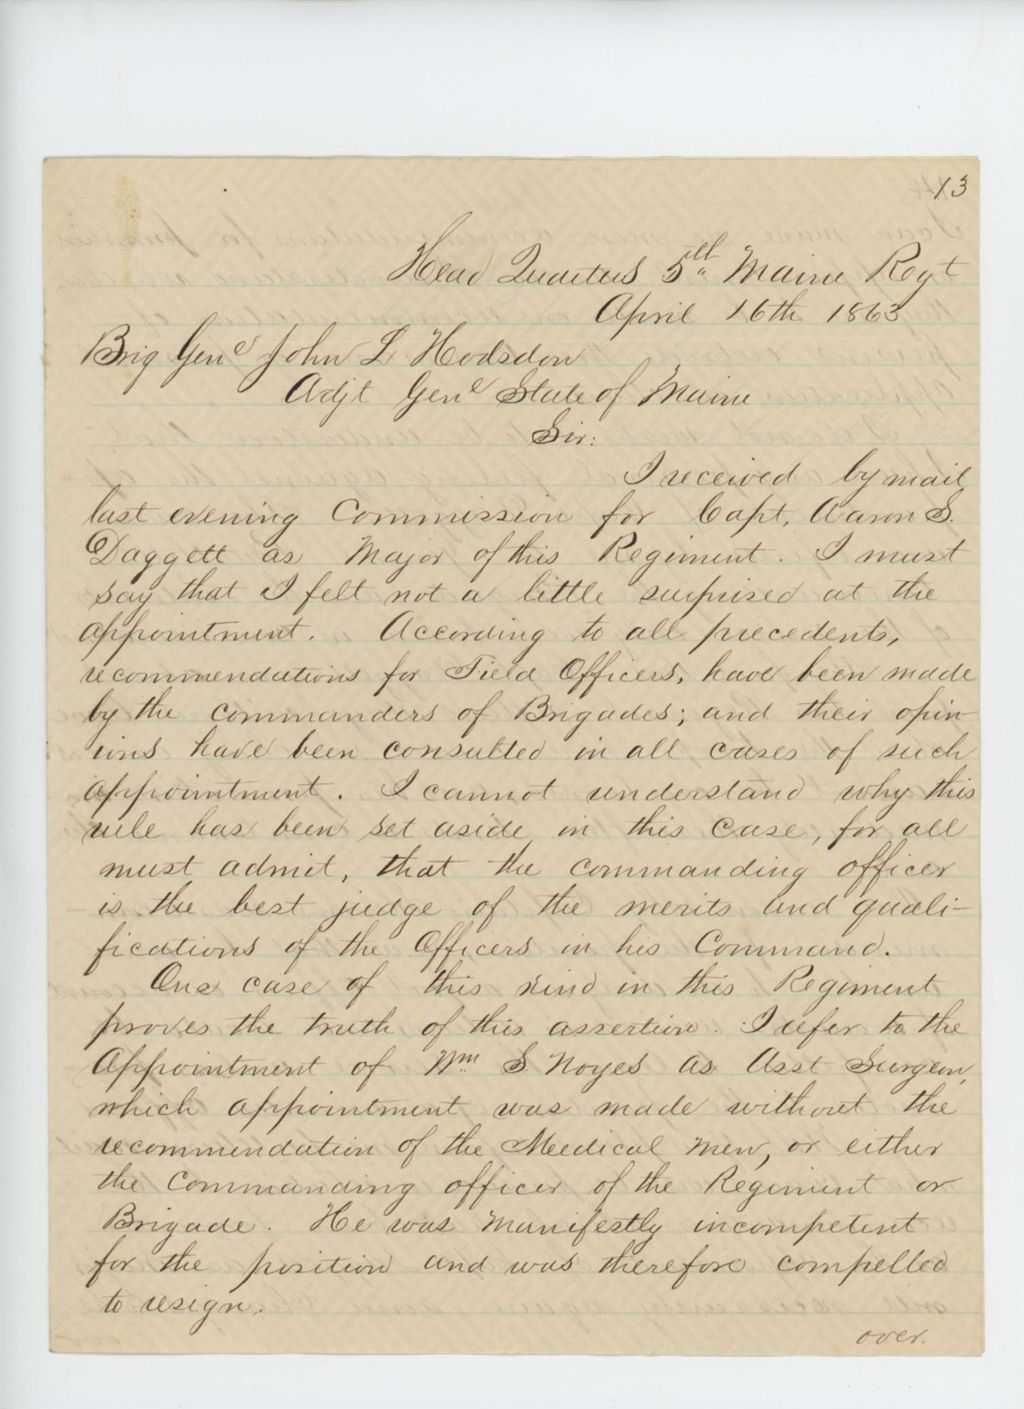 13
Head Quarters 5th Maine Regt
April 16th 1863
Brig Genl John L Hodsdon
Adjt Genl State of Maine
Sir:
I received by mail
last evening Commission for Capt, Aaron S.
Daggett as Major of this Regiment. I must
say that I felt not a little surprised at the
appointment. According to all precedents,
recommendations for Field Officers, have been made
by the Commanders of Brigades; and their opin-
ions have been consulted in all cases of such
appointment. I cannot understand why this
rule has been set aside in this case, for all
must admit, that the commanding officer
is the best judge of the merits and quali-
fications of the Officers in his Command.
One case of this kind in this Regiment
proves the truth of this assertion. I refer to the
Appointment of Wm S Noyes as Asst Surgeon,
which appointment was made without the
recommendation of the Medical men, or either
the Commanding officer of the Regiment or
Brigade. He was manifestly incompetent
for the position and was therefore compelled
to resign.
over.